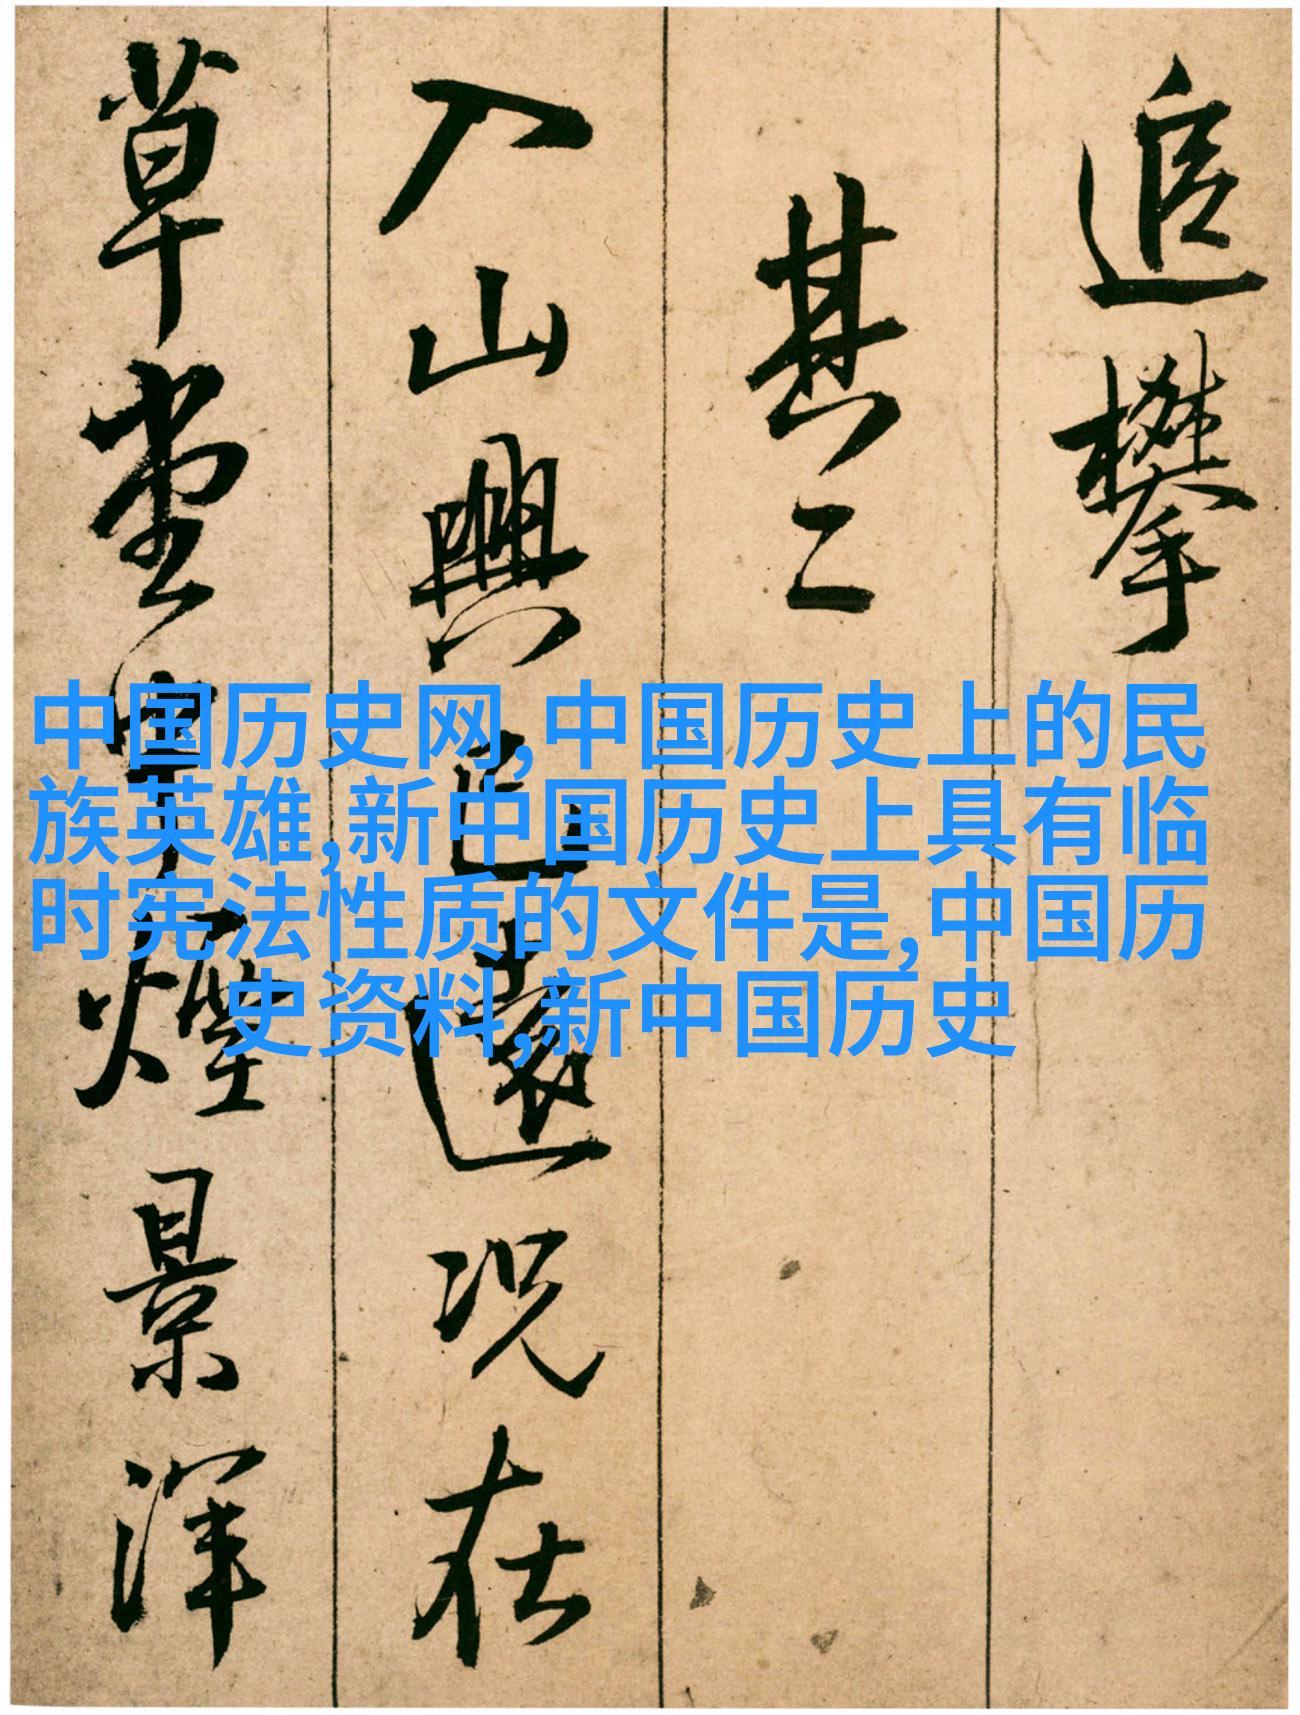 追攀
其二
入山興已遠況在
草堂煙景渾
中国历史网,中国历史上的民
族英雄,新中国历史上具有临
时宪法性质的文件是,中国历
史资料,新中国历史